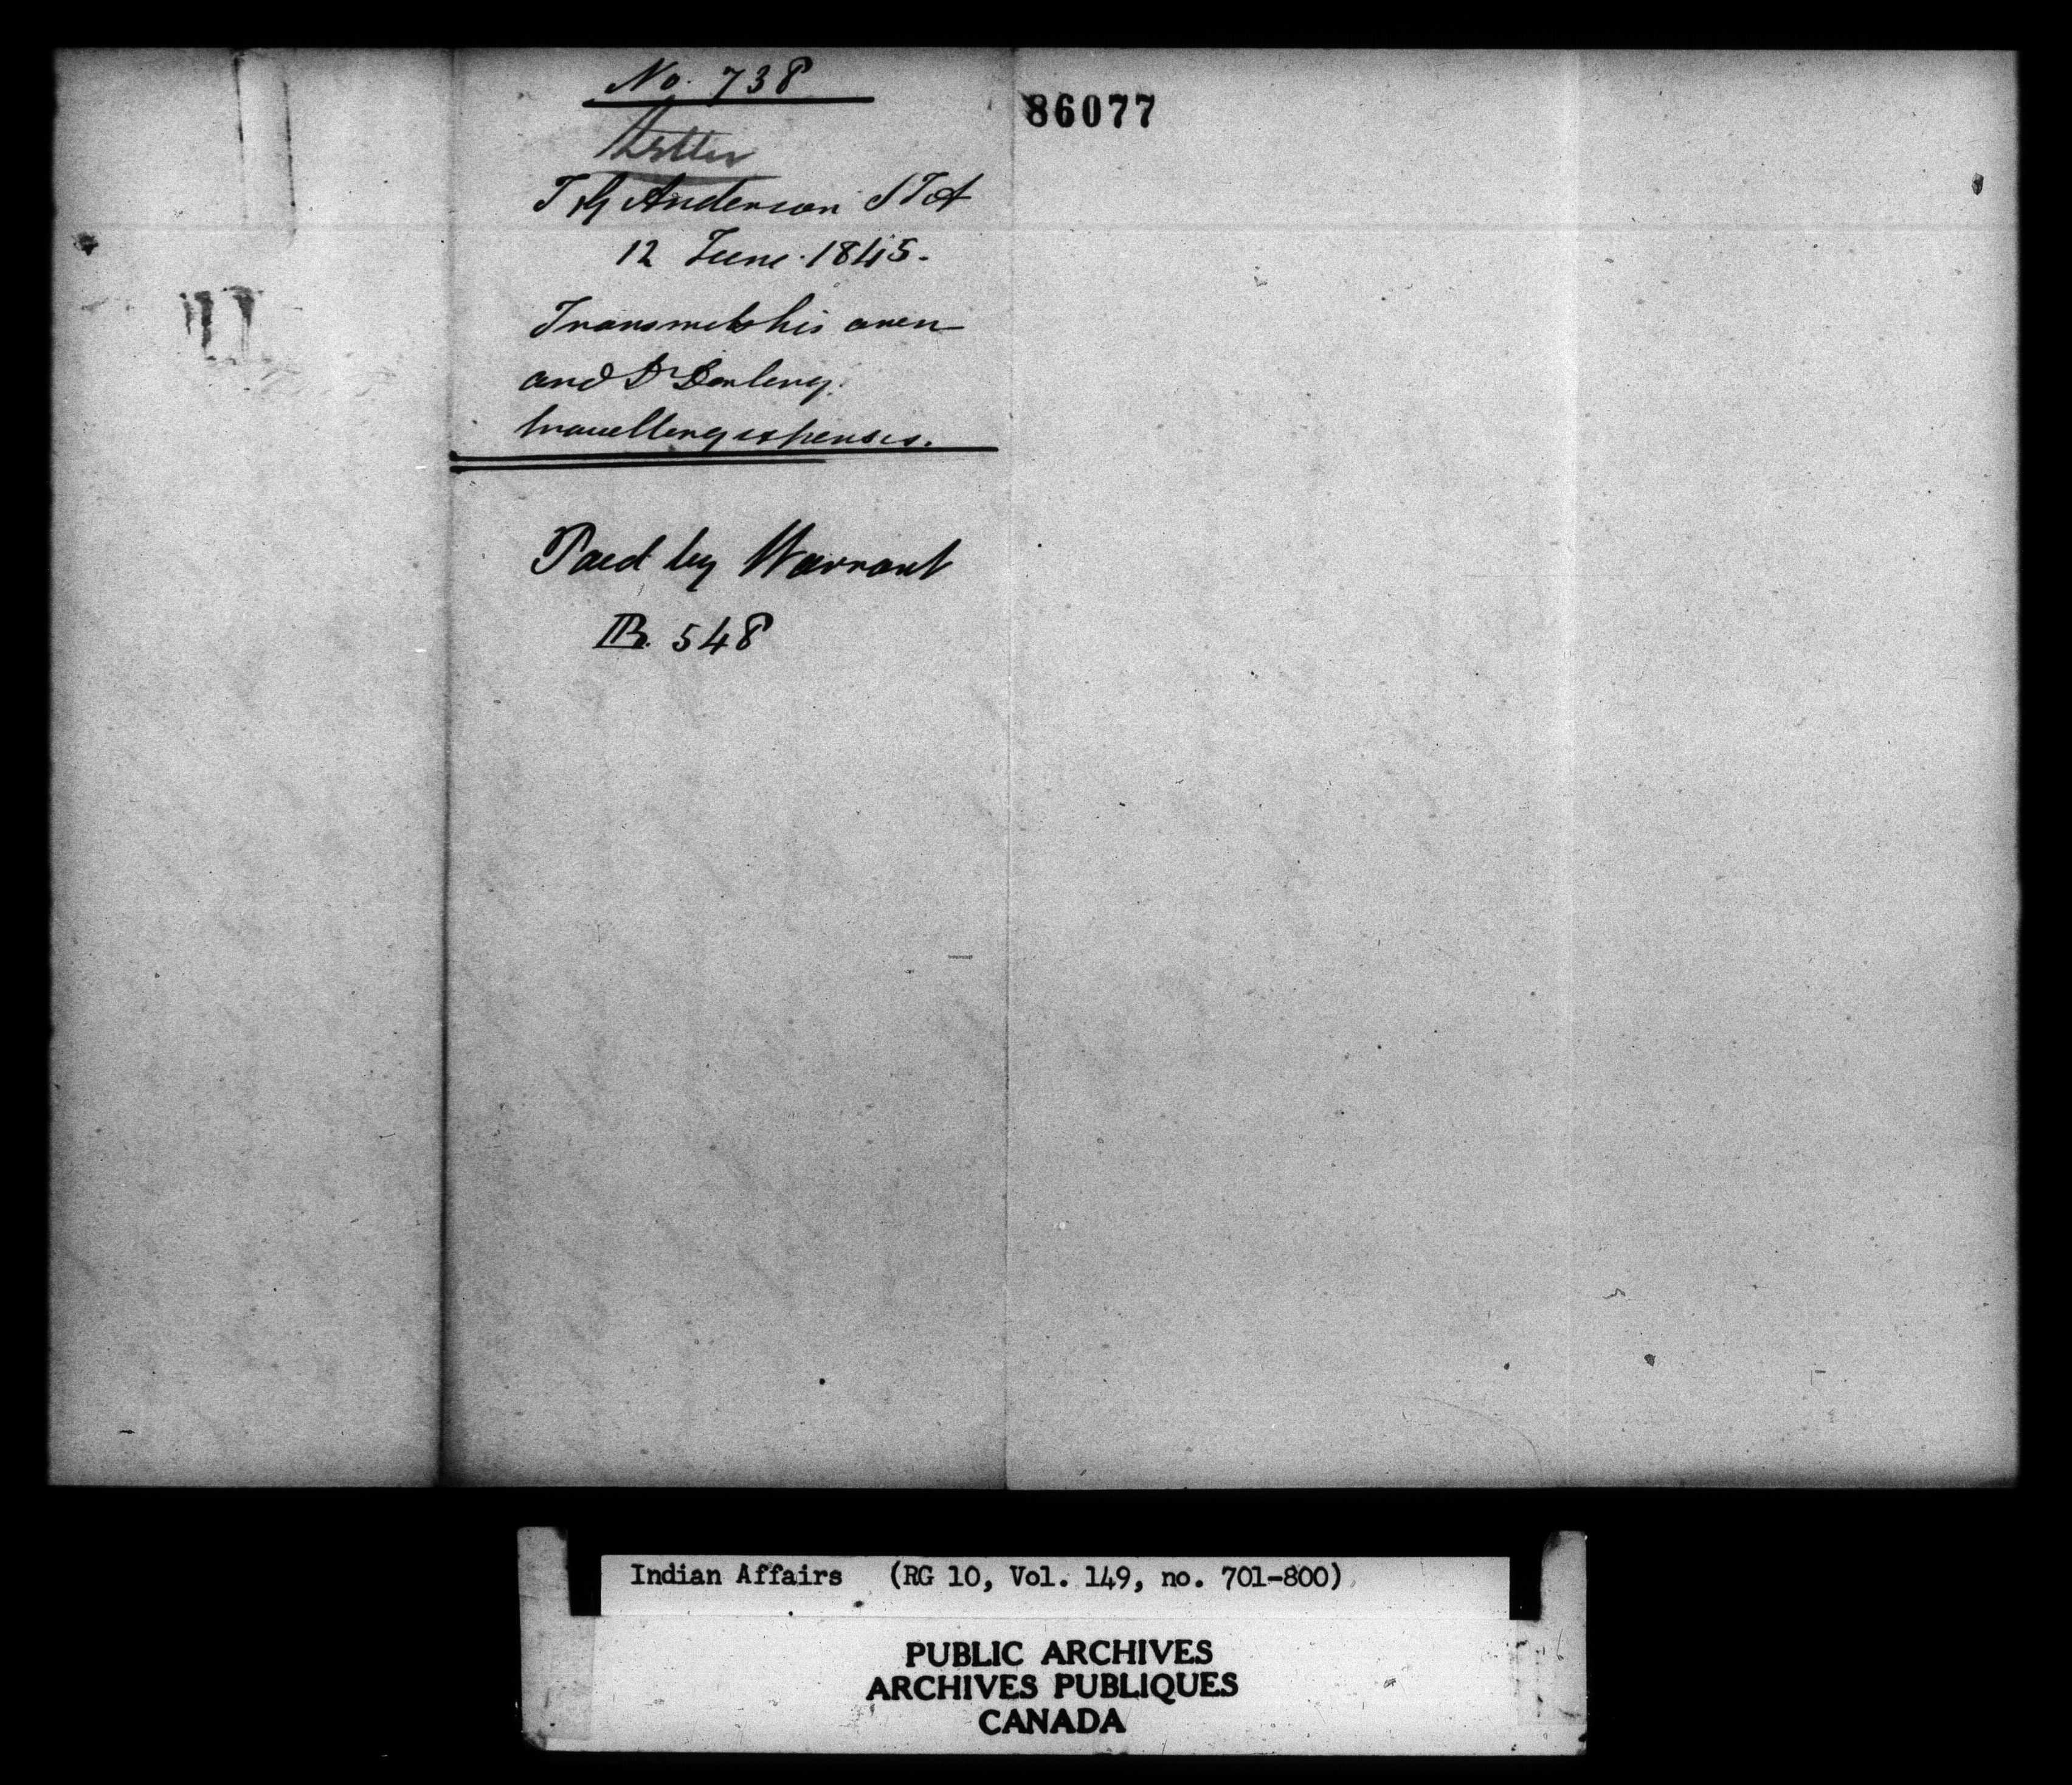 No. 738
Letter
T G Anderson S I A
12 June 1845.
Transmits his own
and Dr Darling.
travelling expenses.
Paid by Warrant
B. 548
86077
Indian Affairs (RG 10, Vol. 149, no. 701-800)
PUBLIC ARCHIVES
ARCHIVES PUBLIQUES
CANADA